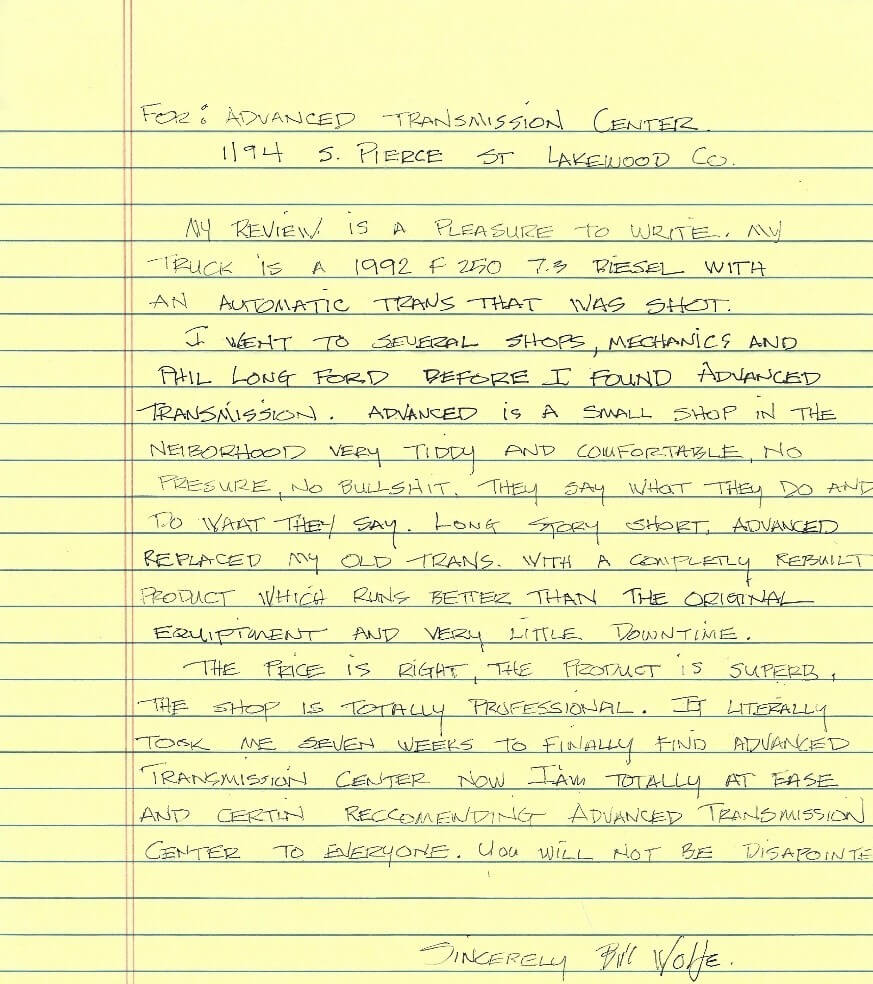 FOR: ADVANCED TRANSMISSION CENTER.
1194 S. PIERCE ST LAKEWOOD CO.
MY REVIEW IS A PLEASURE TO WRITE. MY
TRUCK IS A 1992 F 250 7.3 DIESEL WITH
AN AUTOMATIC TRANS THAT WAS SHOT.
I WENT TO SEVERAL SHOPS, MECHANICS AND
PHIL LONG FORD BEFORE I FOUND ADVANCED
TRANSMISSION. ADVANCED IS A SMALL SHOP IN THE
NEIBORHOOD VERY TIDDY AND COMFORTABLE, NO
PRESURE, NO BULLSHIT. THEY SAY WHAT THEY DO AND
DO WHAT THEY SAY. LONG STORY SHORT, ADVANCED
REPLACED MY OLD TRANS. WITH A COMPLETLY REBUILT
PRODUCT WHICH RUNS BETTER THAN THE ORIGINAL
EQUIPTMENT AND VERY LITTLE DOWNTIME.
THE PRICE IS RIGHT, THE PRODUCT IS SUPERB,
THE SHOP IS TOTALLY PROFESSIONAL. IT LITERALLY
TOOK ME SEVEN WEEKS TO FINALLY FIND ADVANCED
TRANSMISSION CENTER NOW I'AM TOTALLY AT EASE
AND CERTIN RECCOMENDING ADVANCED TRANSMISSION
CENTER TO EVERYONE. YOU WILL NOT BE DISAPOINTE
SINCERELY Bill Wolfe.